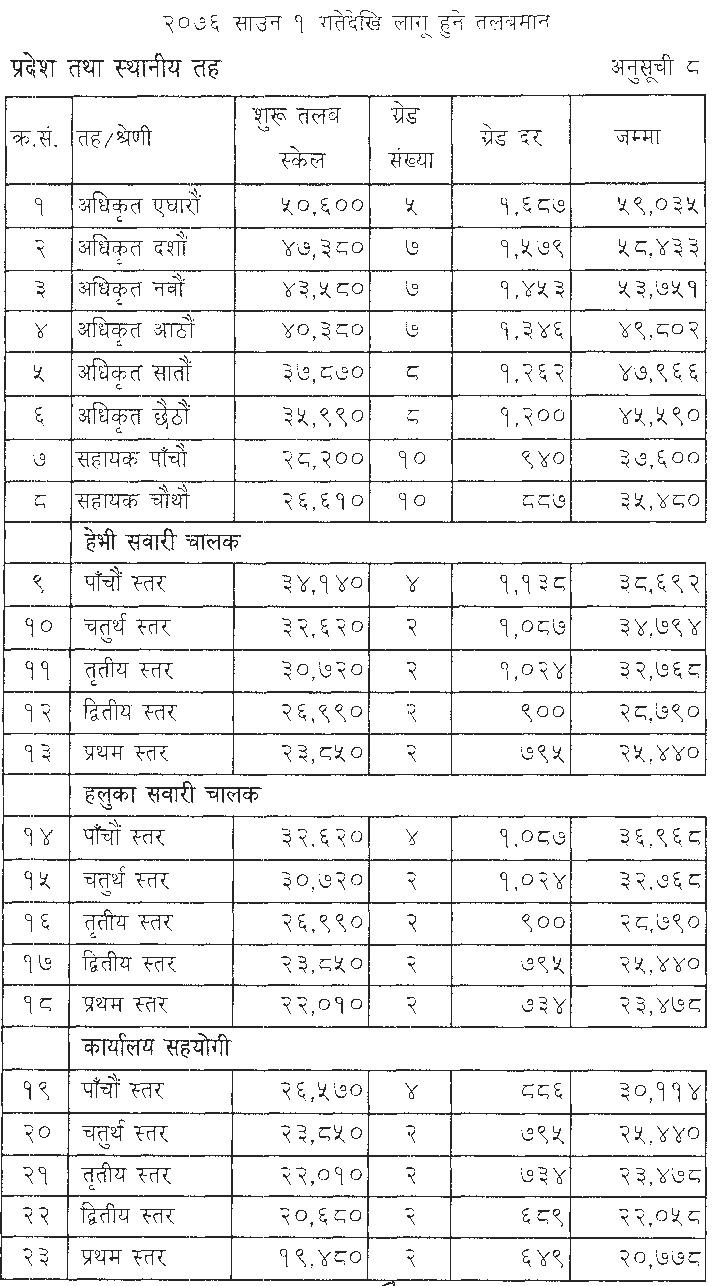 २०७६ साउन १ गतेदेखि लागू हुने तलबमान
प्रदेश तथा स्थानीय तह अनुसूची ८
क्र.सं. तह/श्रेणी शुरू तलब स्केल ग्रेड संख्या ग्रेड दर जम्मा
१ अधिकृत एघारौं ५०,६०० ५ १,६८७ ५९,०३५
२ अधिकृत दशौं ४७,३८० ७ १,५७९ ५८,४३३
३ अधिकृत नवौं ४३,५८० ७ १,४५३ ५३,७५१
४ अधिकृत आठौं ४०,३८० ७ १,३४६ ४९,८०२
५ अधिकृत सातौं ३७,८७० ८ १,२६२ ४७,९६६
६ अधिकृत छैठौं ३५,९९० ८ १,२०० ४५,५९०
७ सहायक पाँचौ २८,२०० १० ९४० ३७,६००
८ सहायक चौथौ २६,६१० १० ८८७ ३५,४८०
हेभी सवारी चालक
९ पाँचौं स्तर ३४,१४० ४ १,१३८ ३८,६९२
१० चतुर्थ स्तर ३२,६२० २ १,०८७ ३४,७९४
११ तृतीय स्तर ३०,७२० २ १,०२४ ३२,७६८
१२ द्वितीय स्तर २६,९९० २ ९०० २८,७९०
१३ प्रथम स्तर २३,८५० २ ७९५ २५,४४०
हलुका सवारी चालक
१४ पाँचौं स्तर ३२,६२० ४ १,०८७ ३६,९६८
१५ चतुर्थ स्तर ३०,७२० २ १,०२४ ३२,७६८
१६ तृतीय स्तर २६,९९० २ ९०० २८,७९०
१७ द्वितीय स्तर २३,८५० २ ७९५ २५,४४०
१८ प्रथम स्तर २२,०१० २ ७३४ २३,४७८
कार्यालय सहयोगी
१९ पाँचौं स्तर २६,५७० ४ ८८६ ३०,११४
२० चतुर्थ स्तर २३,८५० २ ७९५ २५,४४०
२१ तृतीय स्तर २२,०१० २ ७३४ २३,४७८
२२ द्वितीय स्तर २०,६८० २ ६८९ २२,०५८
२३ प्रथम स्तर १९,४८० २ ६४९ २०,७७८